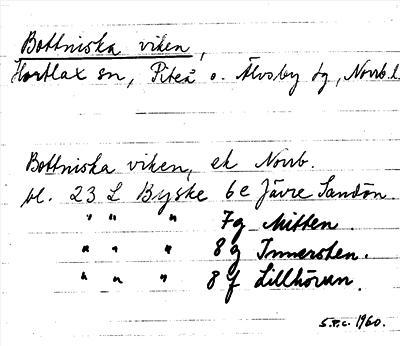 Bottniska viken,
Hortlax sn, Piteå o. Älvsby tg, Norrb. l.
Bottniska viken, ek Norrb.
bl. 23 L Byske 6e Jävre Sandön.
" " " 7g Mitten.
" " " 8g Innersten.
" " " 8f Lillhöran.
1960.